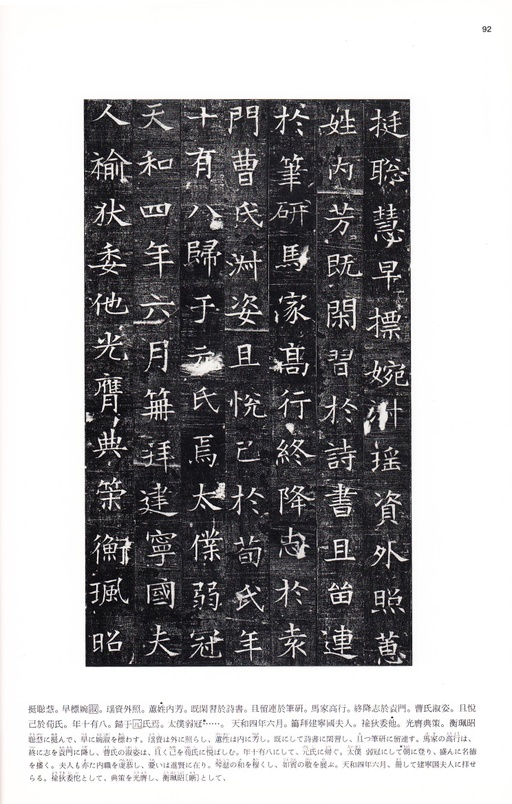 92
挺聡慧早摽婉淑瑶資外照蕙
姓内芳既閑習於詩書且留連
於筆研馬家高行終降志於袁
門曹氏淑姿且悅己於荀氏年
十有八歸于元氏焉太僕弱冠
天和四年六月冊拜建寧國夫
人褕狄委他光膺典策衡珮昭
挺聡慧。早標婉淑。瑶資外照。蕙姓内芳。既閑習於詩書。且留連於筆研。馬家高行。終降志於袁門。曹氏淑姿。且悅
己於荀氏。年十有八。歸于元氏焉。太僕弱冠……。天和四年六月。冊拜建寧國夫人。褕狄委他。光膺典策。衡珮昭
聡慧に挺んで、早に婉淑を標わす。瑶資は外に照らし、蕙性は内に芳し。既にして詩書に閑習し、且つ筆研に留連す。馬家の高行は、
終に志を袁門に降し、曹氏の淑姿は、且く己を荀氏に悅ばしむ。年十有八にして、元氏に帰ぐ。太僕 弱冠にして朝に登り、盛んに名徳
を播く。夫人も
天和四年六月、冊して建寧国夫人に拝せ
らる。褕狄委佗として、典策を光膺し、衡珮昭(晰)として、